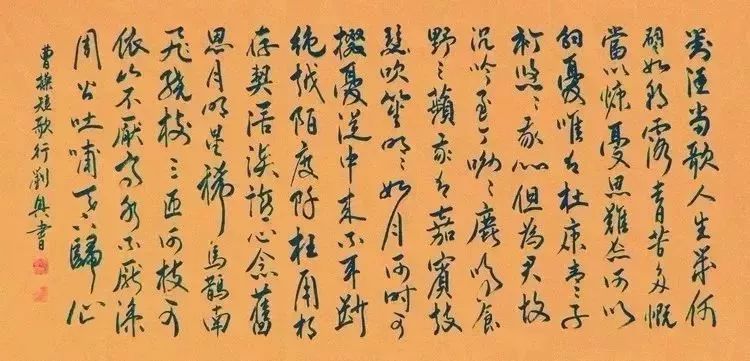 對酒当歌人生幾何
譬如朝露去日苦多慨
當以慷憂思難忘何以
解憂唯有杜康青々子
衿悠々我心但為君故
沉吟至今呦々鹿鳴食
野之蘋我有嘉賓鼓
瑟吹笙明々如月何時可
掇憂從中來不可斷
絕越陌度阡枉用相
存契闊談讌心念舊
恩月明星稀烏鵲南
飛繞樹三匝何枝可
依山不厭高水不厭深
周公吐哺天下歸心
曹操短歌行劉興書